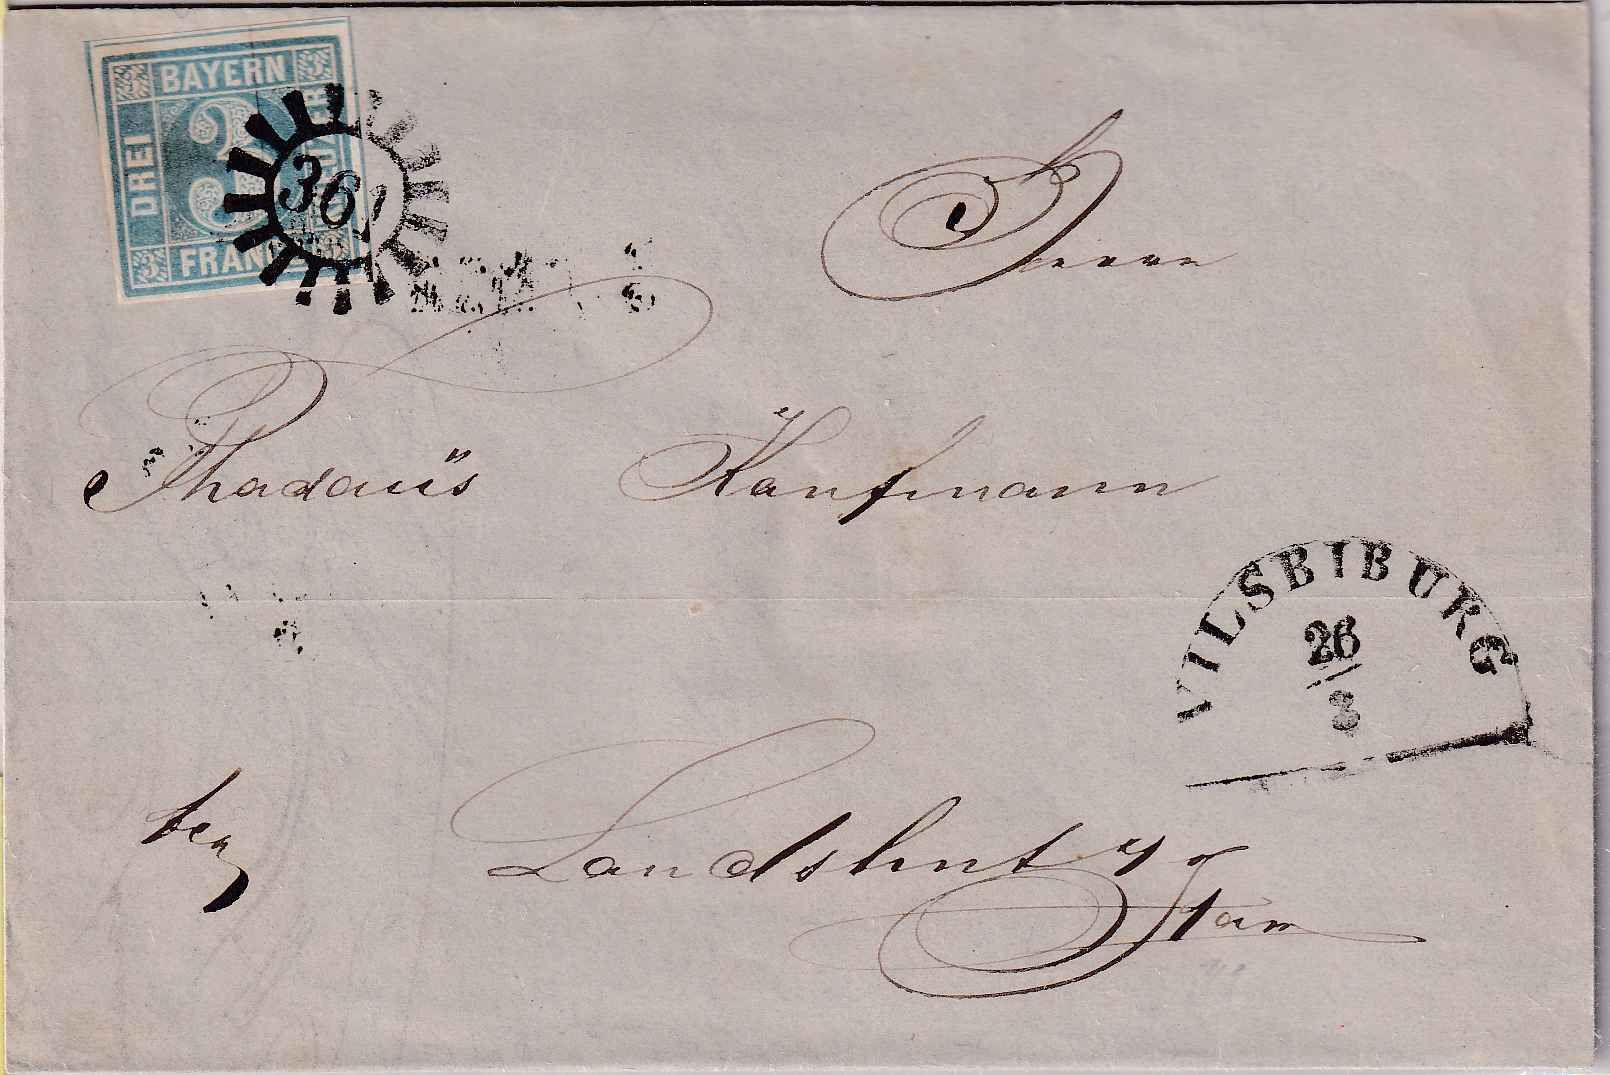 BAYERN
DREI
3
FRANCO
361
Herrn
Thadaüs Kaufmann
VILSBIBURG
26
3
Landshut